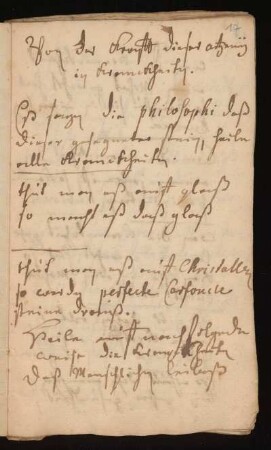 17
Von der Krafft dieser artzenÿ
in Kranckheiten.
Eß sagen die philosophi daß
dieser gesegneter stein heile
alle Kranckheiten.
thut man eß auff glaß
so macht eß daß glaß
thut man eß auff Christallen
so werden perfecte Carfoncke
steine drauß.
Heile auff nachfolgende
weise die Kranckheiten
deß Menschlichen leibeß